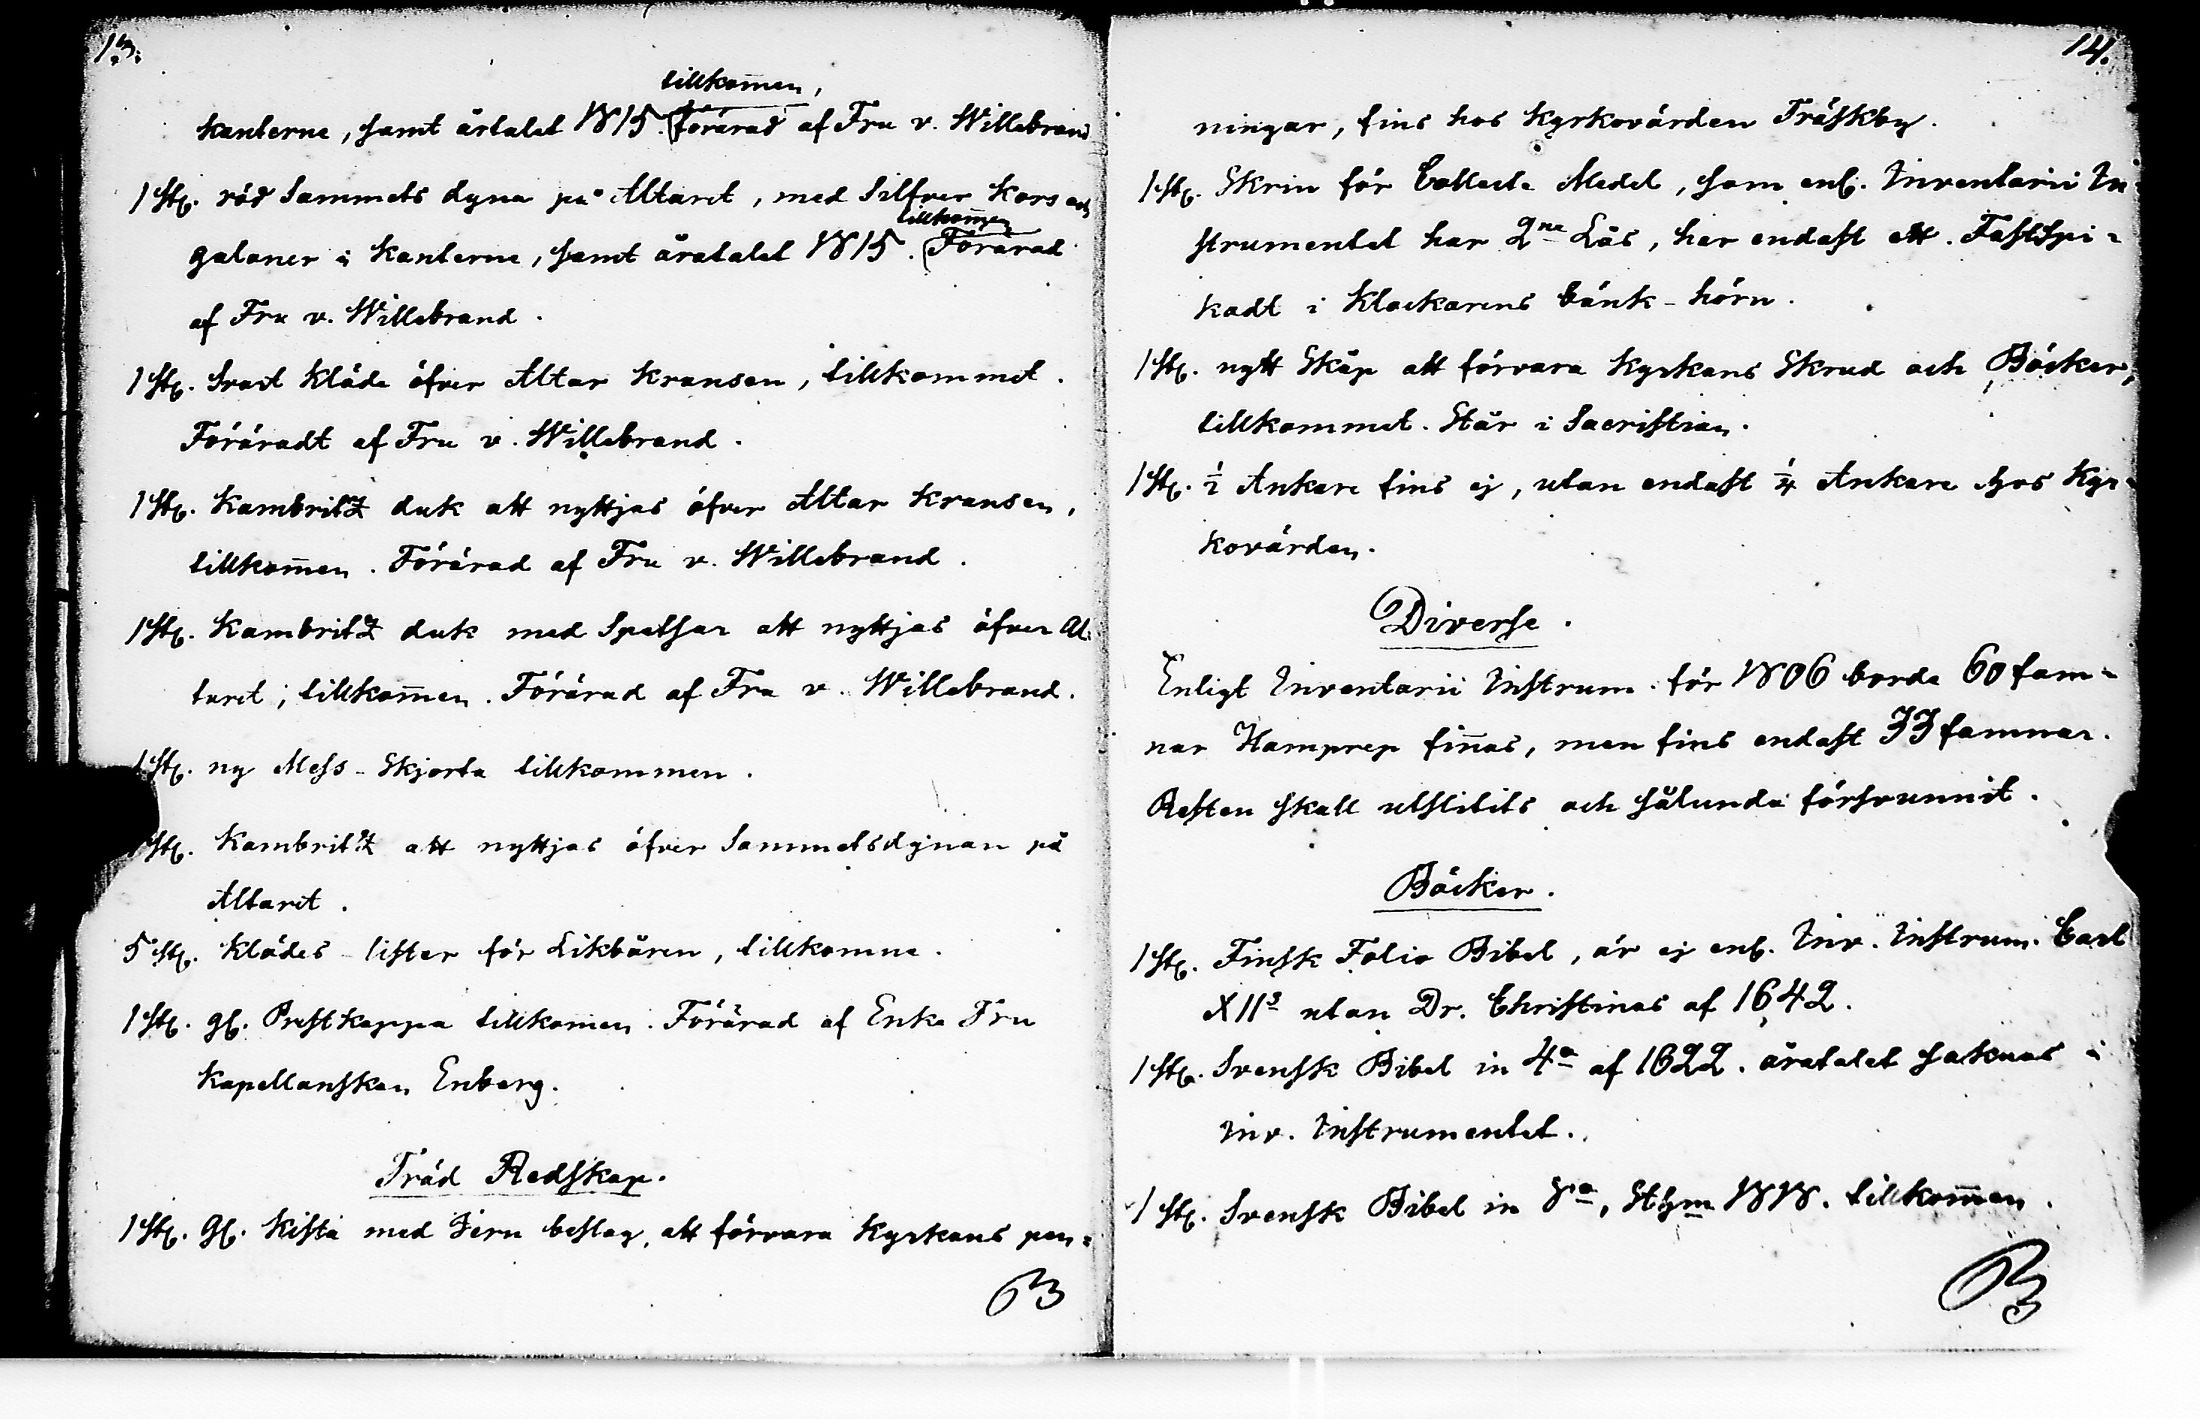 13.
tillkom̅en,
kanterne, samt årtalet 1815. förärad af Fru v. Willebrand
1 st. röd Sammets dyna på Altaret, med Silfver Kors och
tillkom̅en
galoner i kanterne, samt åratalet 1815. Förärad
af Fru v. Willebrand.
1 st. Svart kläde öfver Altar kransen, tillkommet.
Föräradt af Fru v. Willebrand.
1 st. Kambritz duk att nyttjas öfver Altar kransen,
tillkom̅en. Förärad af Fru v. Willebrand.
1 st. Kambritz duk med Spetsar att nyttjas öfver Al-
taret, tillkom̅en. Förärad af Fru v. Willebrand.
1 st. ny Mess-Skjorta tillkommen.
1 st. Kambritz att nyttjas öfver Sammetsdynan på
Altaret.
5 st. klädes-lister för Likbåren, tillkomne.
1 st. gl. Prestkappa tillkomen. Förärad af Enke Fru
Kapellanskan Enberg.
Träd Redskap.
1 st. gl. Kista med Jern beslag, att förvara Kyrkans pen=
14.
ningar, fins hos Kyrkovärden Träskby.
1 st. Skrin för Collecte Medel, som enl. Inventarii In-
strumentet har 2ne Lås, har endast ett. Fastspi=
kadt i Klockarens bänk-hörn.
1 st. nytt Skåp att förvara Kyrkans Skrud och Böcker,
tillkommet. Står i Sacristian.
1 st. ½ Ankare fins ej, utan endast ¼ Ankare hos Kyr-
kovärden.
Diverse.
Enligt Inventarii Instrum. för 1806 borde 60 fam=
nar Hamprep fin̅as, men fins endast 33 famnar.
Resten skall utslitits och sålunda försvunnit.
Böcker.
1 st. Finsk Folio Bibel, är ej enl. Inv. Instrum. Carl
XIIs utan Dr. Christinas af 1642.
1 st. Svensk Bibel in 4o af 1622. åratalet saknas i
Inv. Instrumentet.
1 st. Svensk Bibel in 8o, Sthm 1818. tillkom̅en.